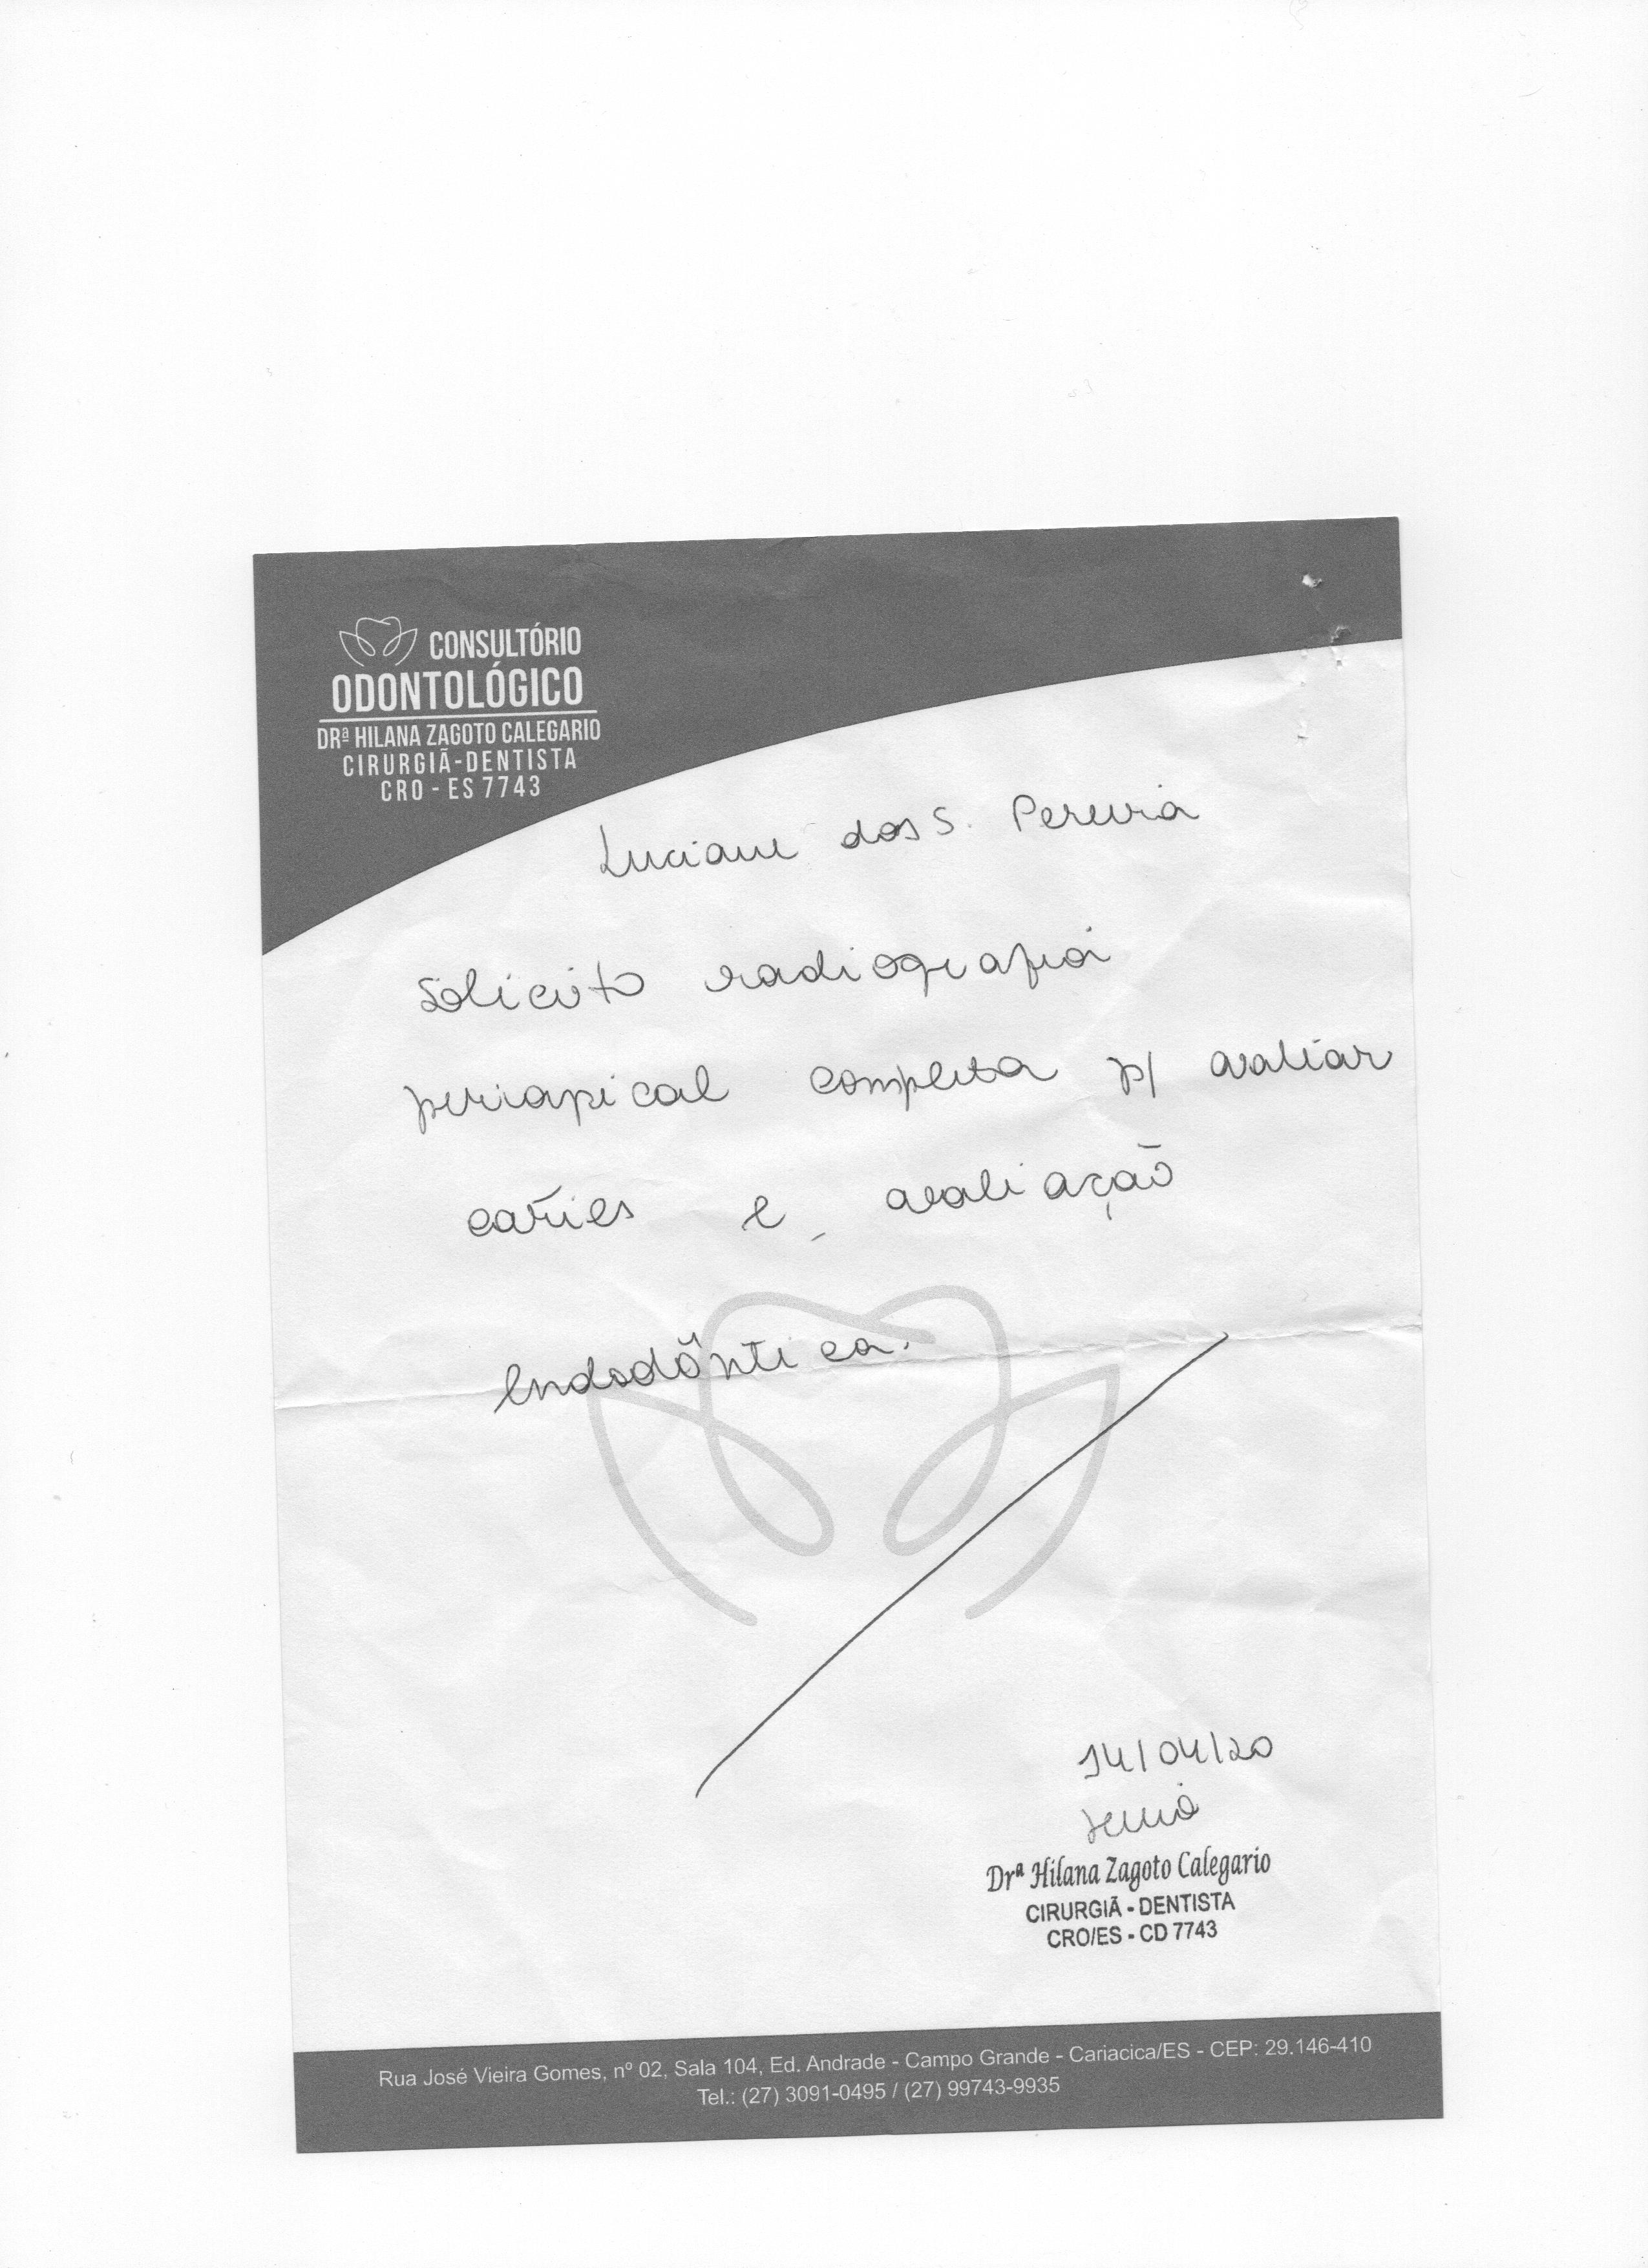 CONSULTÓRIO
ODONTOLÓGICO
DRª HILANA ZAGOTO CALEGARIO
CIRURGIÃ-DENTISTA
CRO - ES 7743
Luciane dos S. Pereira
Solicito radiografia
periapical completa p/ avaliar
cáries e avaliação
Endodôntica.
14/04/20
Drª Hilana Zagoto Calegario
CIRURGIÃ - DENTISTA
CRO/ES - CD 7743
Rua José Vieira Gomes, nº 02, Sala 104, Ed. Andrade - Campo Grande - Cariacica/ES - CEP: 29.146-410
Tel.: (27) 3091-0495 / (27) 99743-9935